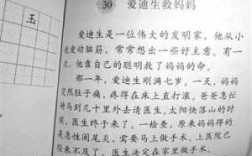 玉
30 爱迪生救妈妈
爱迪生是一位伟大的发明家。他从小
爱动脑筋，常常想出一些好主意。有一
次，他靠自己的聪明救了妈妈的命。
那一年，爱迪生刚满七岁。一天，妈妈
突然肚子痛，疼得在床上直打滚。爸爸急忙
骑马到几十里外去请医生。太阳快落山的时
候，医生终于来了。一检查，原来妈妈得的
是急性阑尾炎，需要马上做手术。上医院已
经来不及了，医生决定在家里做手术。